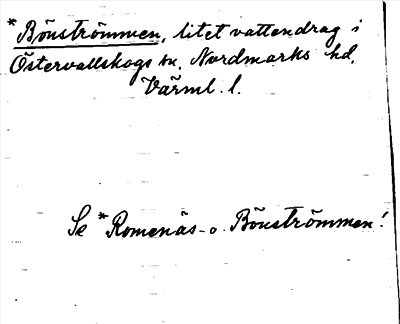 *Bönströmmen, litet vattendrag i
Östervallskogs sn. Nordmarks hd.
Värml. l.
Se *Romenäs- o. Bönströmmen!